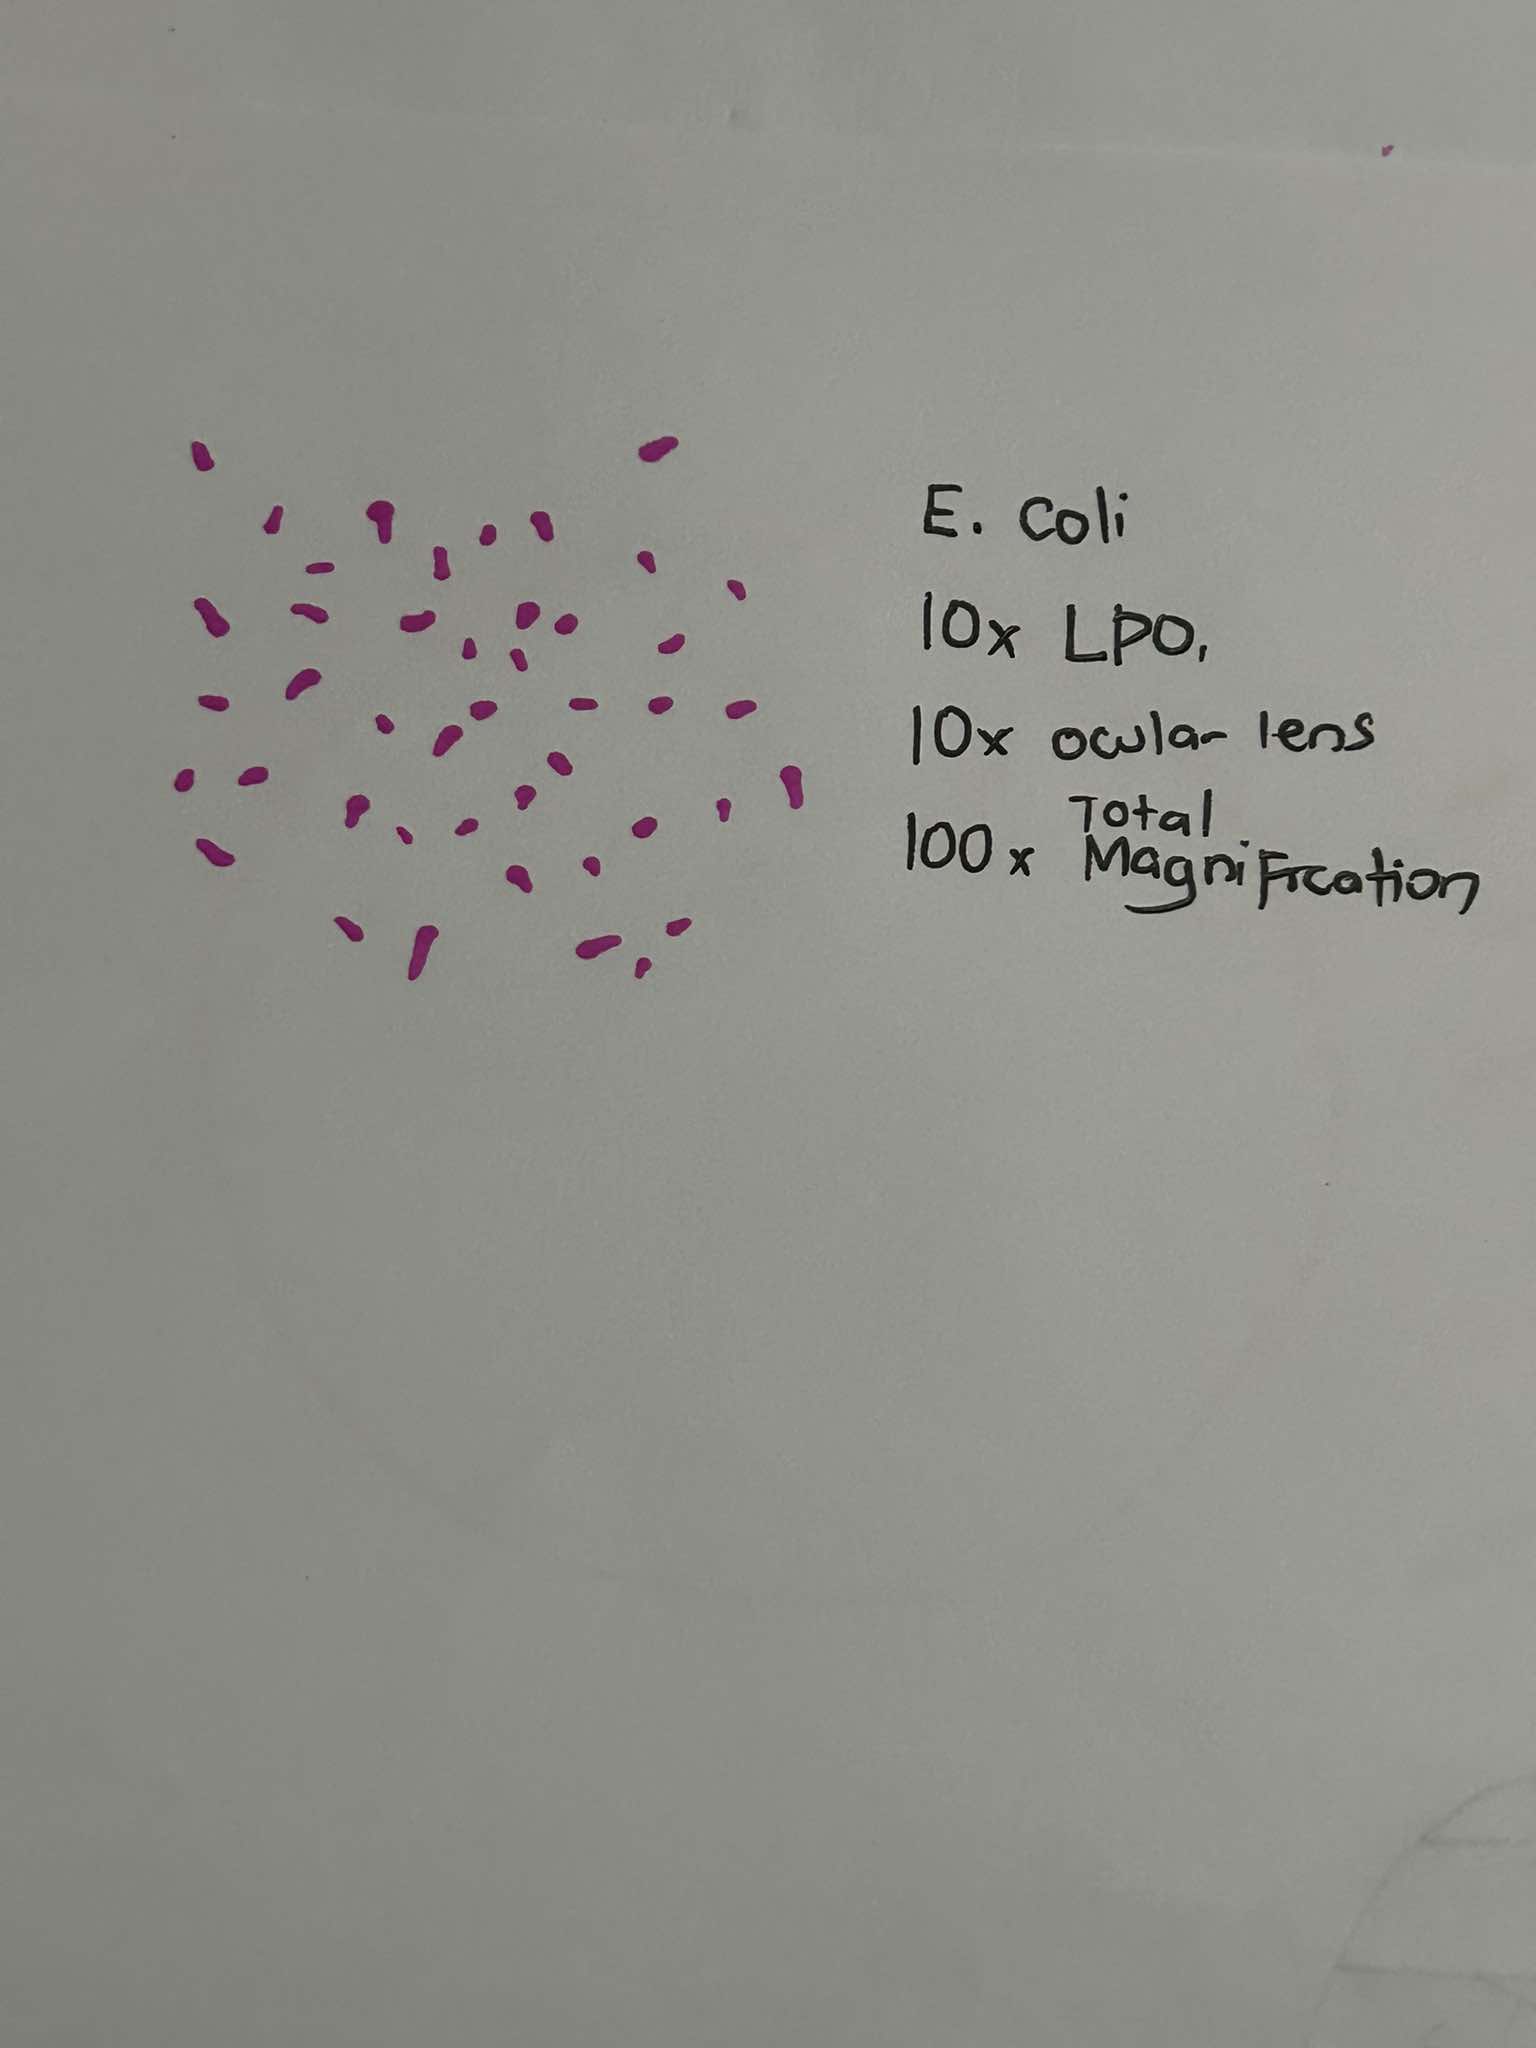 E. coli
10x LPO,
10x ocular lens
100x Total Magnification